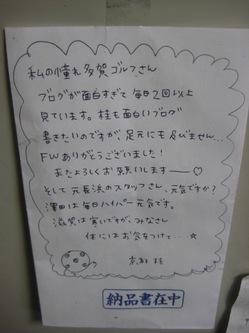 私の憧れ多賀ゴルフさん
ブログが面白すぎて毎日2回以上
見ています。桂も面白いブログ
書きたいのですが、足元にも及びません…
FWありがとうございました！
またよろしくお願いします――♡
そして元長浜のスタッフさん、元気ですか？
澤田は毎日ハイパー元気です。
滋賀は寒いですが、みなさん
体にはお気をつけて…☆
桂
納品書在中